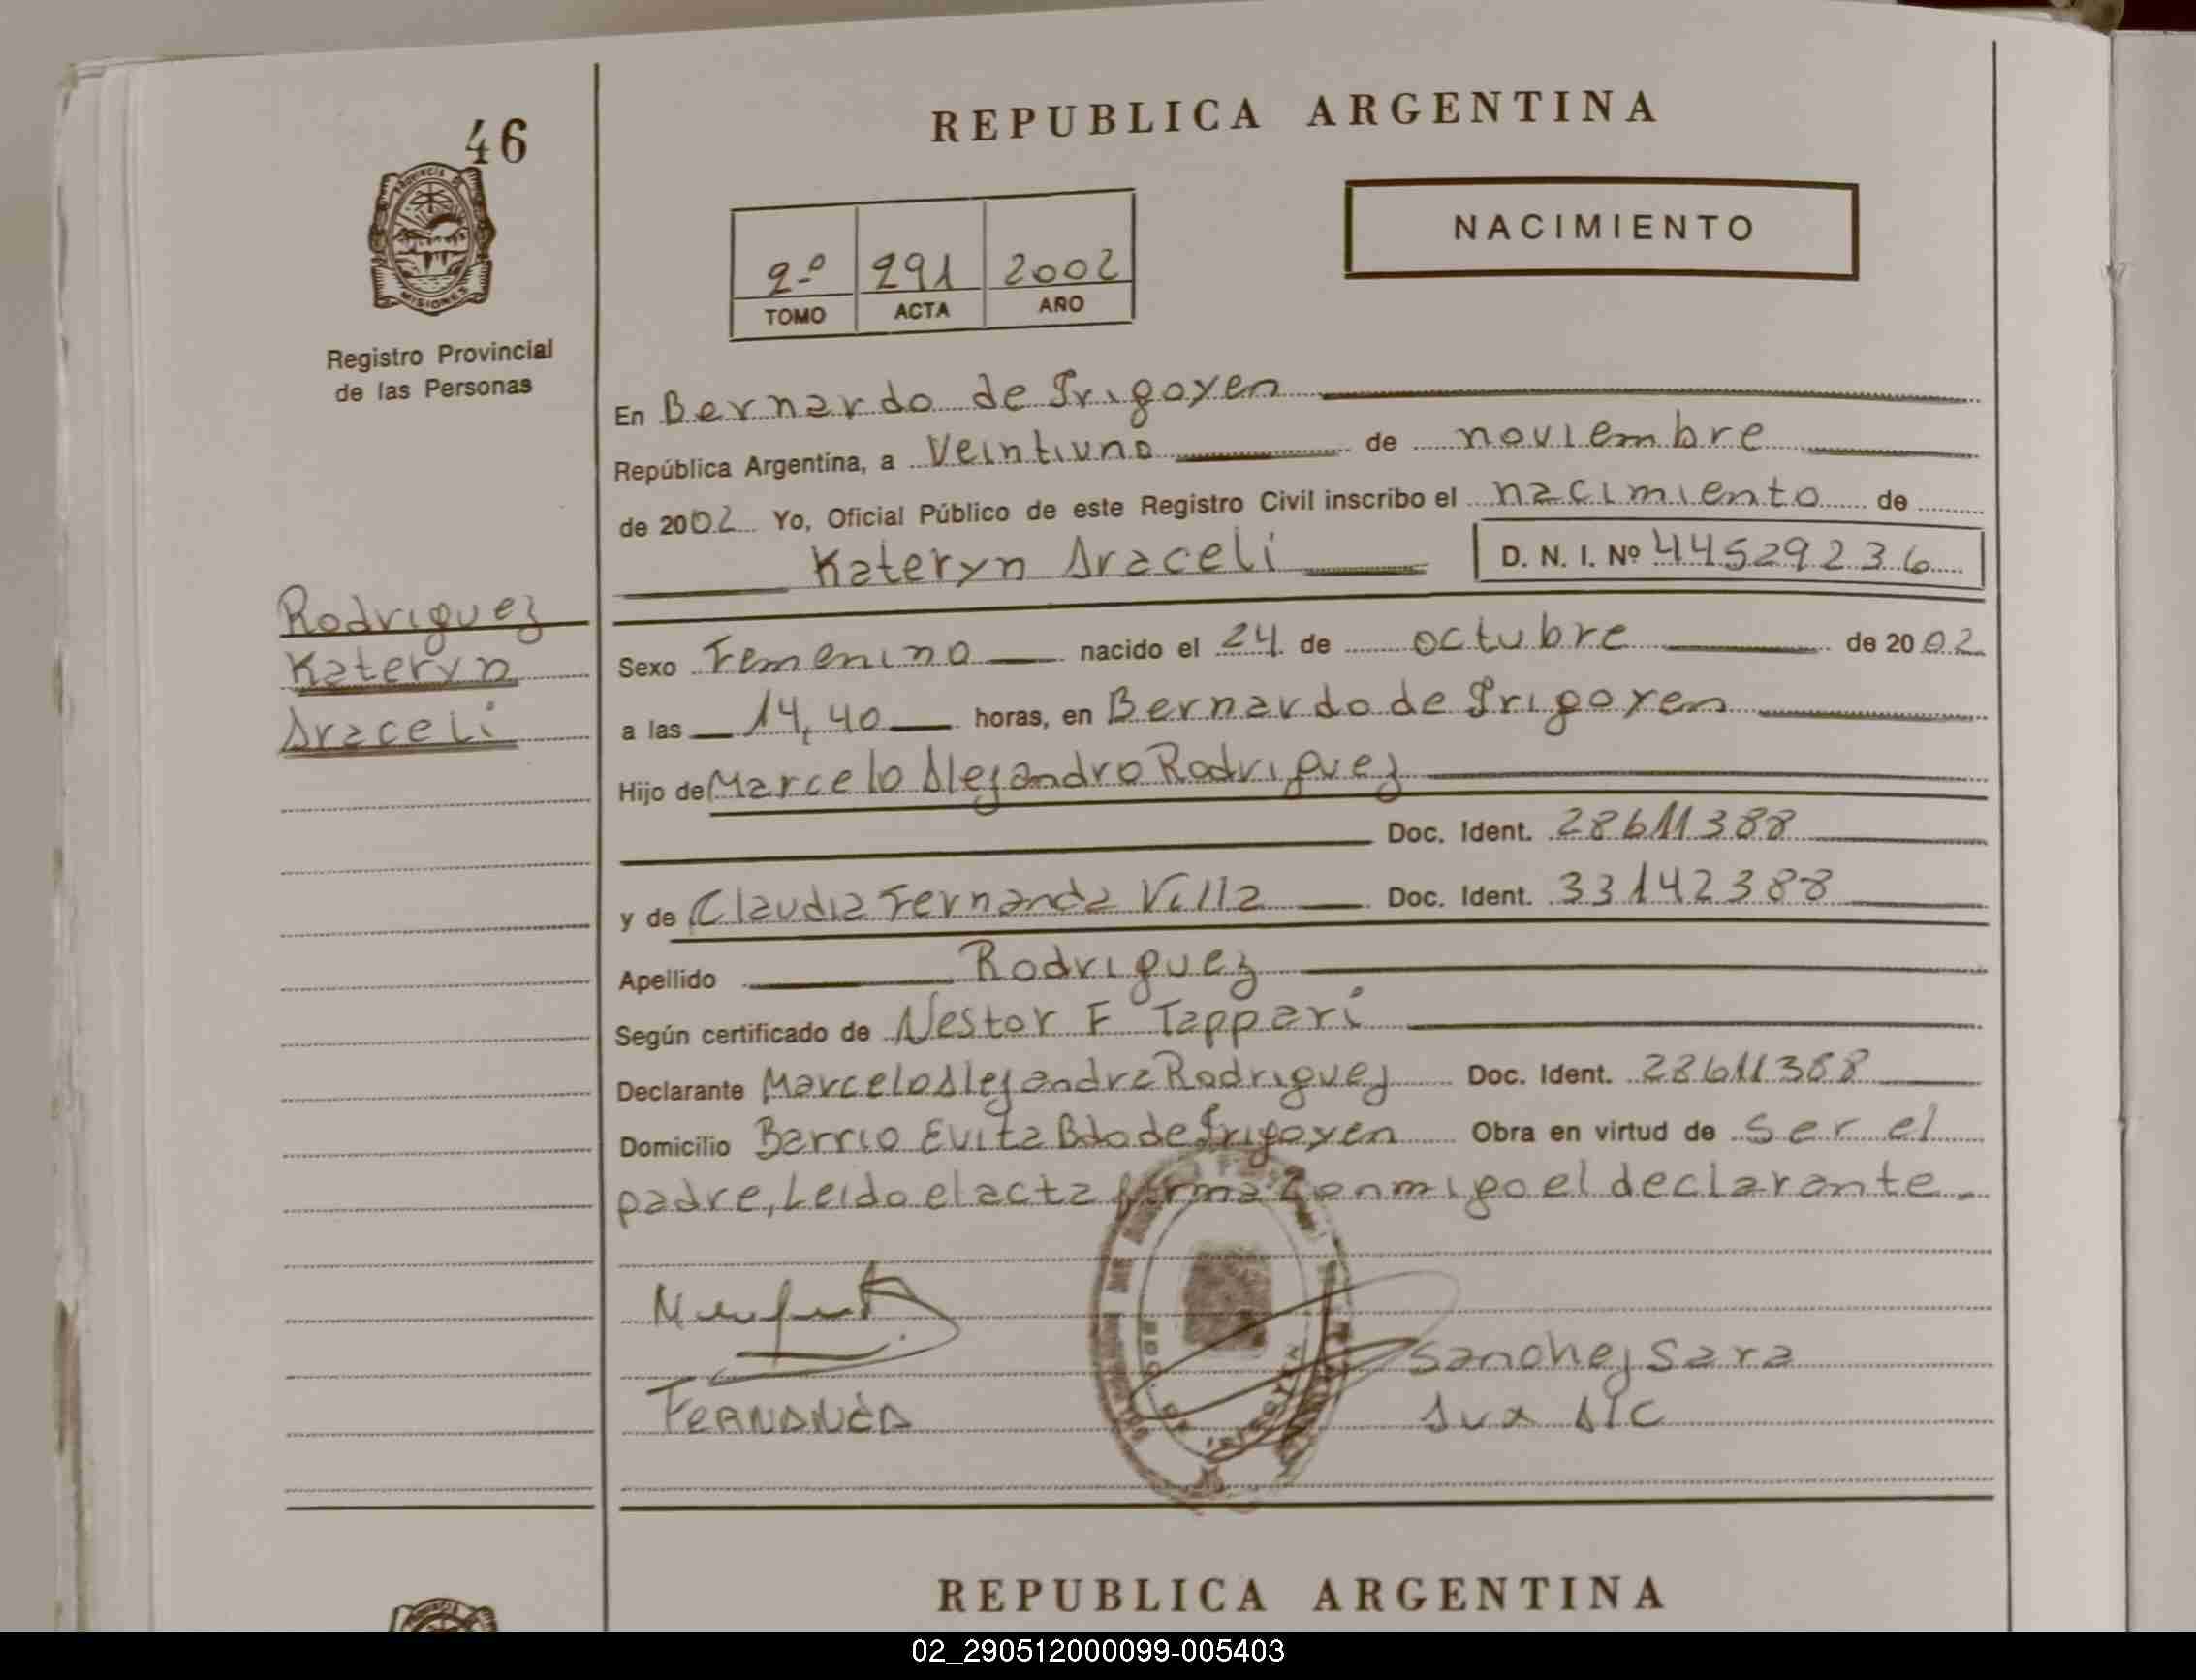 46
REPUBLICA ARGENTINA
PROVINCIA
MISIONES
Registro Provincial
de las Personas
NACIMIENTO
2º 291 2002
TOMO ACTA AÑO
En Bernardo de Irigoyen
República Argentina, a Veintiuno de noviembre
de 2002 Yo, Oficial Público de este Registro Civil inscribo el nacimiento de
Kateryn Araceli D. N. I. Nº 44529236
Rodriguez
Kateryn
Araceli
Sexo Femenino nacido el 24 de octubre de 2002
a las 14,40 horas, en Bernardo de Irigoyen
Hijo de Marcelo Alejandro Rodriguez
Doc. Ident. 28611388
y de Claudia Fernanda Villa Doc. Ident. 33142388
Apellido Rodriguez
Según certificado de Nestor F Tappari
Declarante Marcelo Alejandra Rodriguez Doc. Ident. 28611388
Domicilio Barrio Evita Bdo de Irigoyen Obra en virtud de ser el
padre, Leido el acta firma conmigo el declarante.
Sanchez Sara
REPUBLICA ARGENTINA
02_290512000099-005403